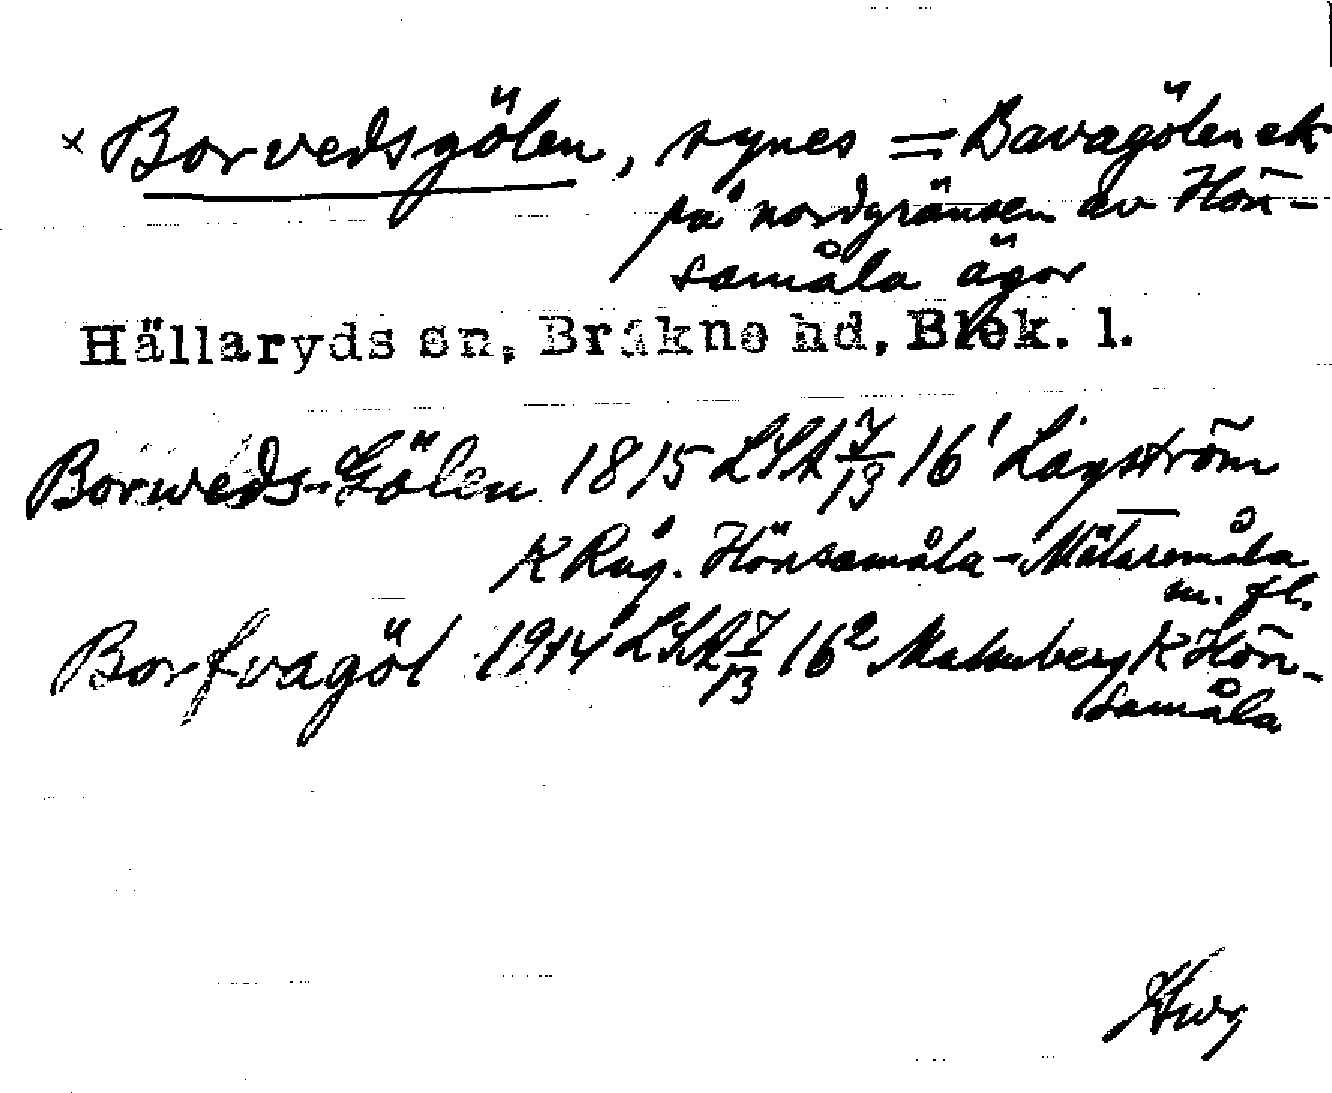 × Borvedsgölen, synes = Bavagölen ek
på nordgränsen av Hön-
samåla ägor
Hällaryds sn, Bräkne hd, Blek. l.
Borweds-Gölen 1815 LSA 7/13 16¹ Lagström
K Råg. Hönsamåla-Målaremåla
m. fl.
Borfvagöl 1914 LSA 7/13 16² Malmberg K Hön-
samåla